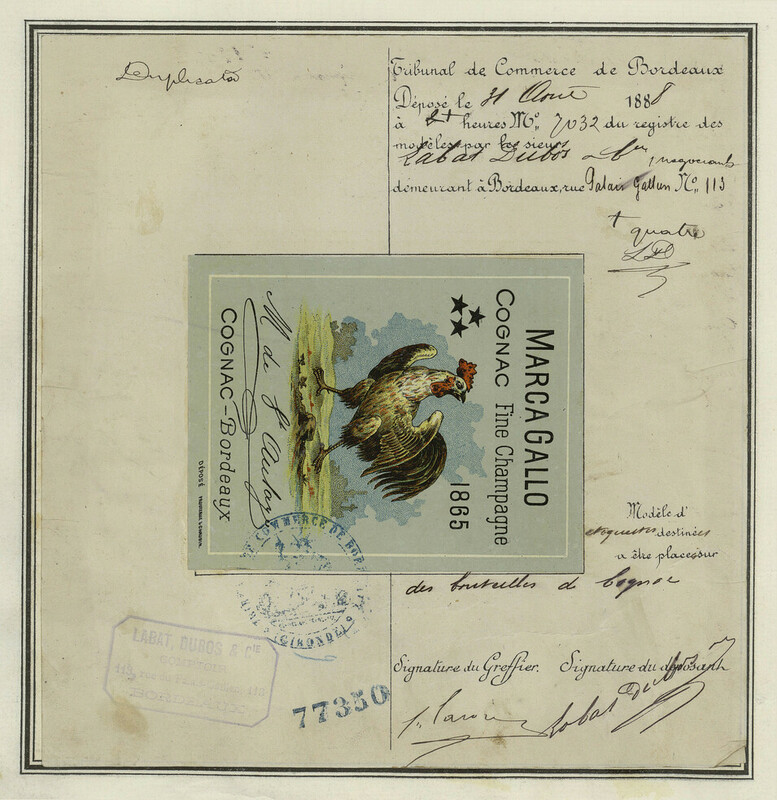 Duplicata
Tribunal de Commerce de Bordeaux
Déposé le 31 Août 1888
à heures No. 7032 du registre des
modèles par les sieurs
Labat Dubos & Cie, négociants
demeurant à Bordeaux, rue Palais Gallien No. 113
+ quatre
LD
MARCA GALLO
COGNAC Fine Champagne
1865
M de St Aubin
COGNAC-Bordeaux
DÉPOSÉ
Modèle d'
étiquettes destinées
à être placés sur
des bouteilles de Cognac
COMMERCE DE BOR
(GIRONDE)
LABAT, DUBOS & CIE
COMPTOIR
BORDEAUX
77350
Signature du Greffier. Signature du déposant
Labat Dubos